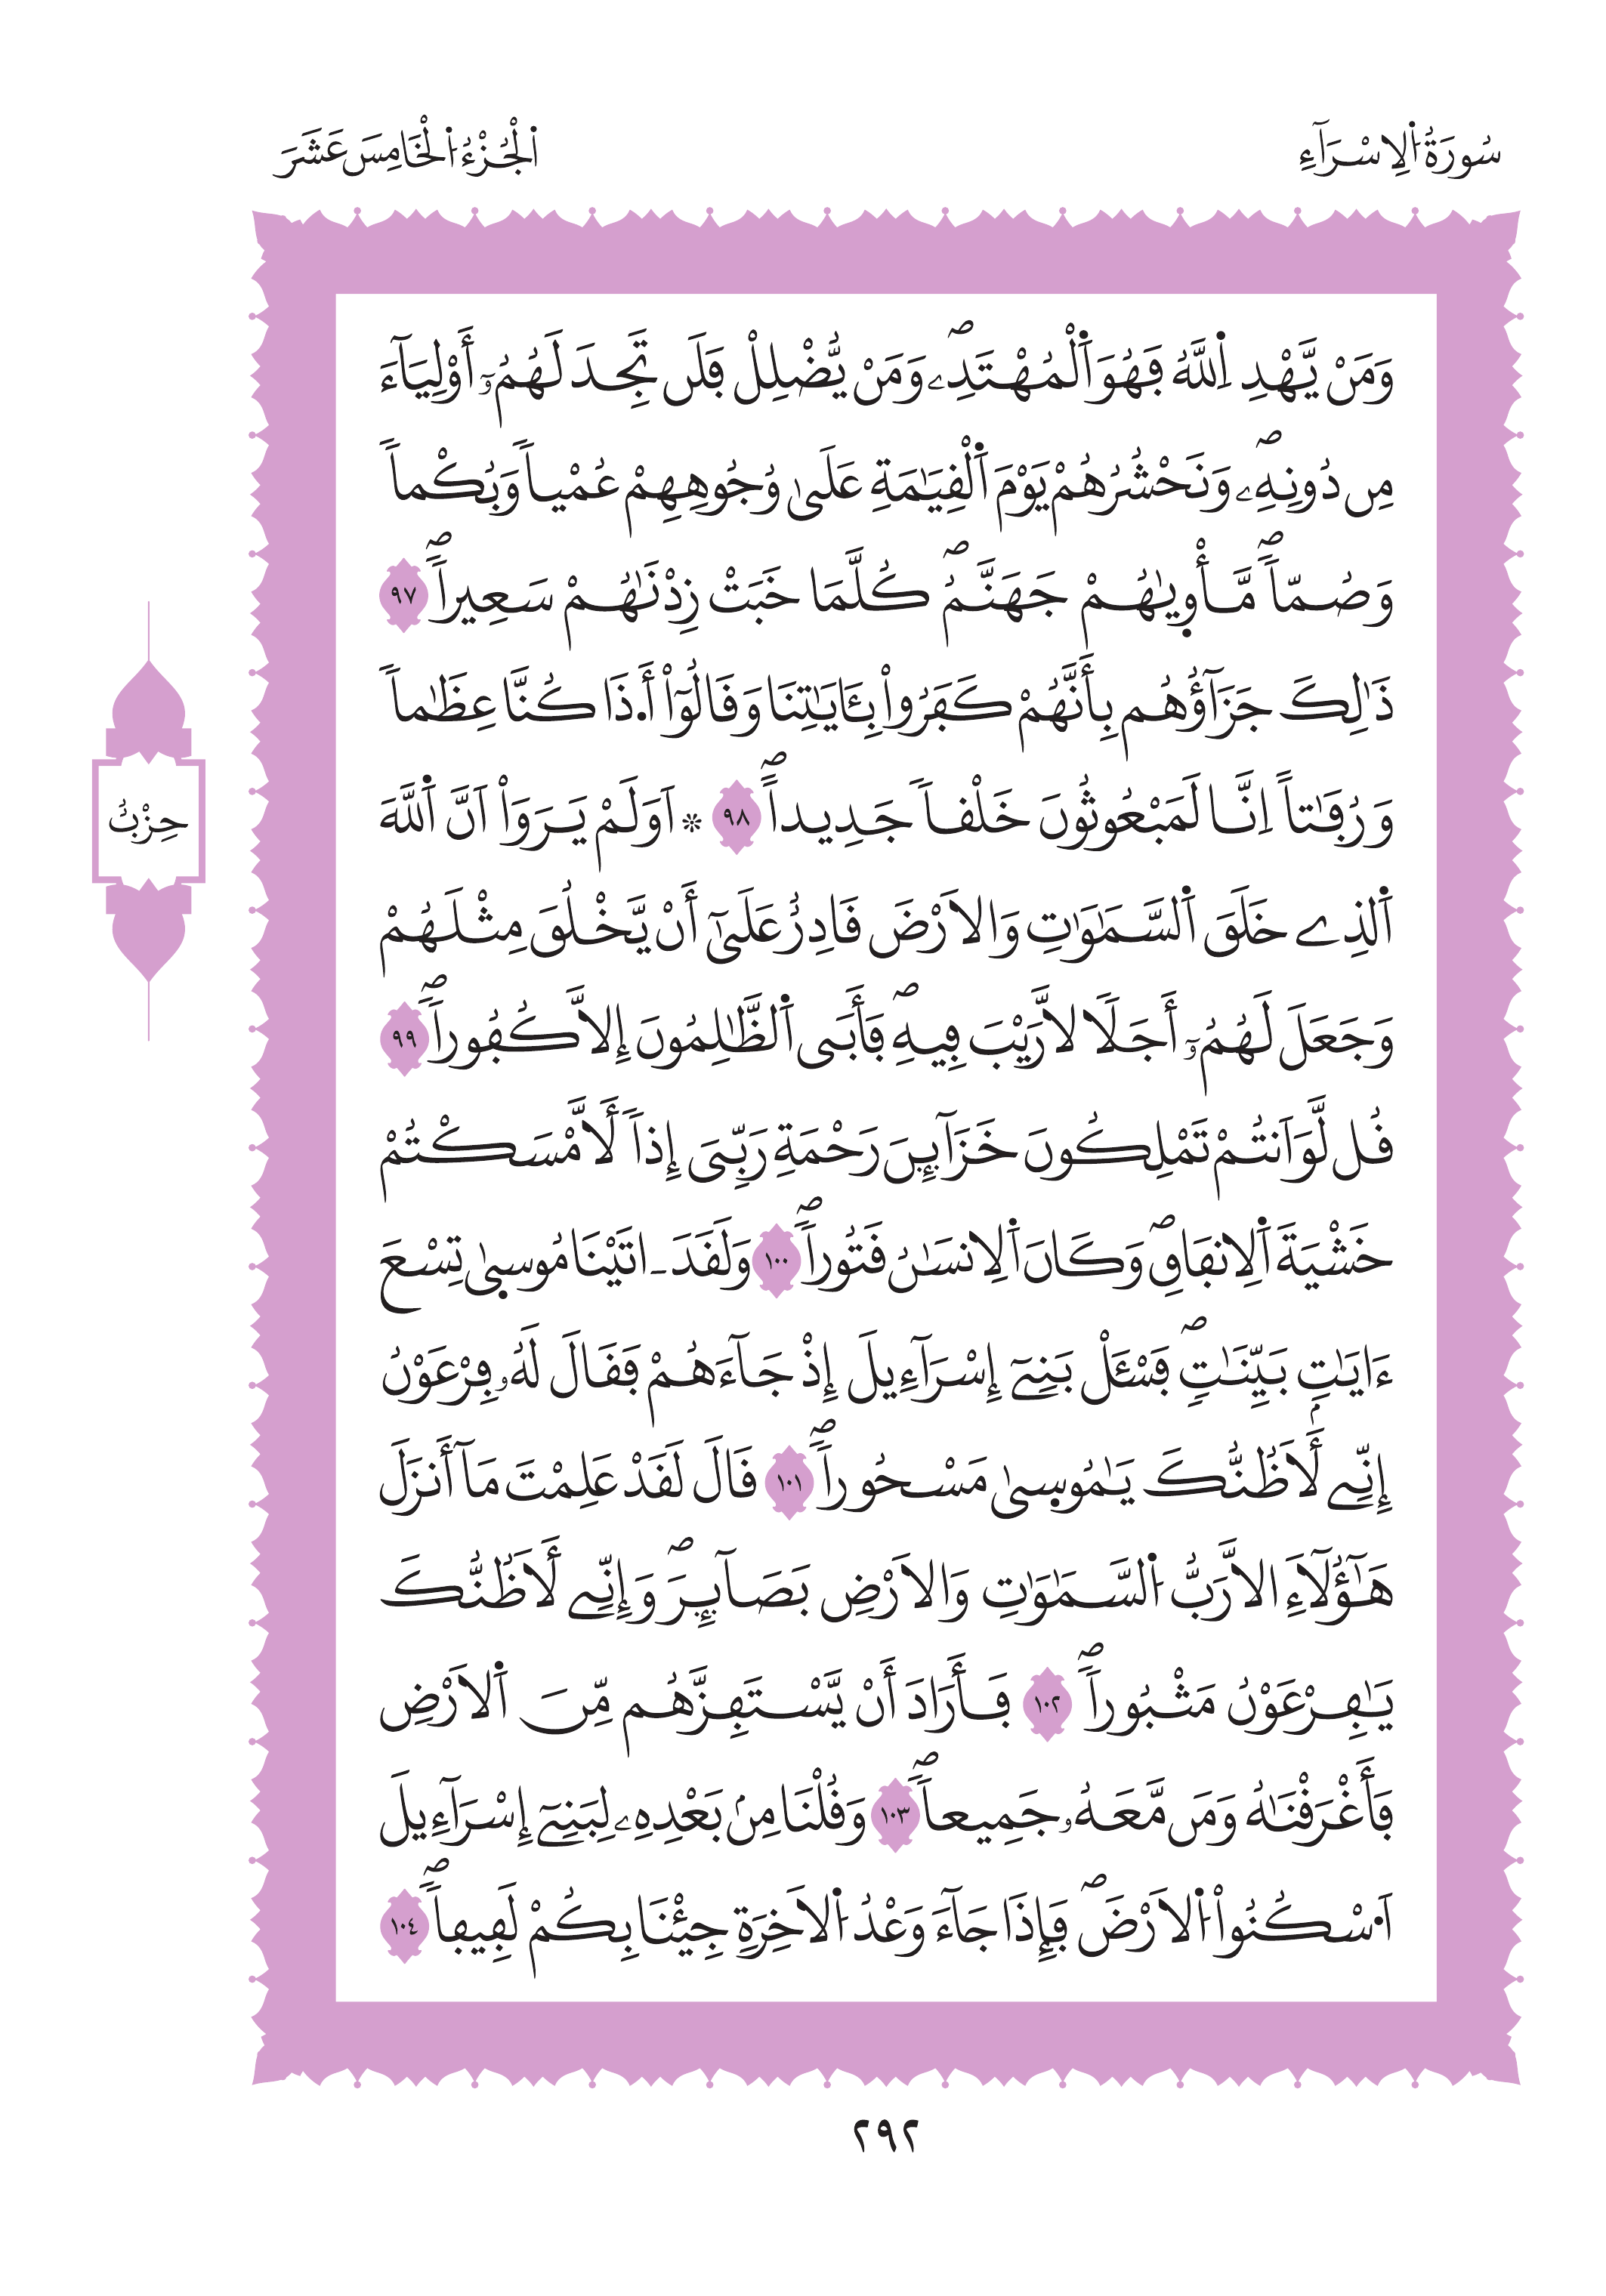 سُورَةُ اُ۬لِاسْرَآءِ
اُ۬لْجُزْءُ اُ۬لْخَامِسَ عَشَرَ
وَمَنْ يَّهْدِ اِ۬للَّهُ فَهُوَ اَ۬لْمُهْتَدِۦۖ وَمَنْ يُّضْلِلْ فَلَن تَجِدَ لَهُمُۥٓ أَوْلِيَآءَ
مِن دُونِهِۦۖ وَنَحْشُرُهُمْ يَوْمَ اَ۬لْقِيَٰمَةِ عَلَىٰ وُجُوهِهِمْ عُمْياٗ وَبُكْماٗ
وَصُمّاٗۖ مَّأْوِيٰهُمْ جَهَنَّمُۖ كُلَّمَا خَبَتْ زِدْنَٰهُمْ سَعِيراٗۖ ٩٧
ذَٰلِكَ جَزَآؤُهُم بِأَنَّهُمْ كَفَرُواْ بِـَٔايَٰتِنَا وَقَالُوٓاْ أَ.ذَا كُنَّا عِظَٰماٗ
وَرُفَٰتاً اِنَّا لَمَبْعُوثُونَ خَلْقاٗ جَدِيداٗۖ ٩٨ * اَوَلَمْ يَرَوَاْ اَنَّ اَ۬للَّهَ
اَ۬لذِے خَلَقَ اَ۬لسَّمَٰوَٰتِ وَالَارْضَ قَادِرٌ عَلَىٰٓ أَنْ يَّخْلُقَ مِثْلَهُمْ
وَجَعَلَ لَهُمُۥٓ أَجَلاٗ لَّا رَيْبَ فِيهِۖ فَأَبَى اَ۬لظَّٰلِمُونَ إِلَّا كُفُوراٗۖ ٩٩
قُل لَّوَ اَنتُمْ تَمْلِكُونَ خَزَآئِنَ رَحْمَةِ رَبِّيَ إِذاٗ لَّأَمْسَكْتُمْ
خَشْيَةَ اَ۬لِانفَاقِۖ وَكَانَ اَ۬لِانسَٰنُ قَتُوراٗۖ ١٠٠ وَلَقَدَ ـ اتَيْنَا مُوسِىٰ تِسْعَ
ءَايَٰتِۢ بَيِّنَٰتٖۖ فَسْـَٔلْ بَنِےٓ إِسْرَآءِيلَ إِذْ جَآءَهُمْ فَقَالَ لَهُۥ فِرْعَوْنُ
إِنِّے لَأَظُنُّكَ يَٰمُوسِىٰ مَسْحُوراٗۖ ١٠١ قَالَ لَقَدْ عَلِمْتَ مَآ أَنزَلَ
هَٰٓؤُلَآءِ الَّا رَبُّ اُ۬لسَّمَٰوَٰتِ وَالَارْضِ بَصَآئِرَۖ وَإِنِّے لَأَظُنُّكَ
يَٰفِرْعَوْنُ مَثْبُوراٗۖ ١٠٢ فَأَرَادَ أَنْ يَّسْتَفِزَّهُم مِّنَ اَ۬لَارْضِ
فَأَغْرَقْنَٰهُ وَمَن مَّعَهُۥ جَمِيعاٗۖ ١٠٣ وَقُلْنَا مِنۢ بَعْدِهِۦ لِبَنِےٓ إِسْرَآءِيلَ
اَ۟سْكُنُواْ اُ۬لَارْضَۖ فَإِذَا جَآءَ وَعْدُ اُ۬لَاخِرَةِ جِئْنَا بِكُمْ لَفِيفاٗۖ ١٠٤
حِزْبٌ
٢٩٢